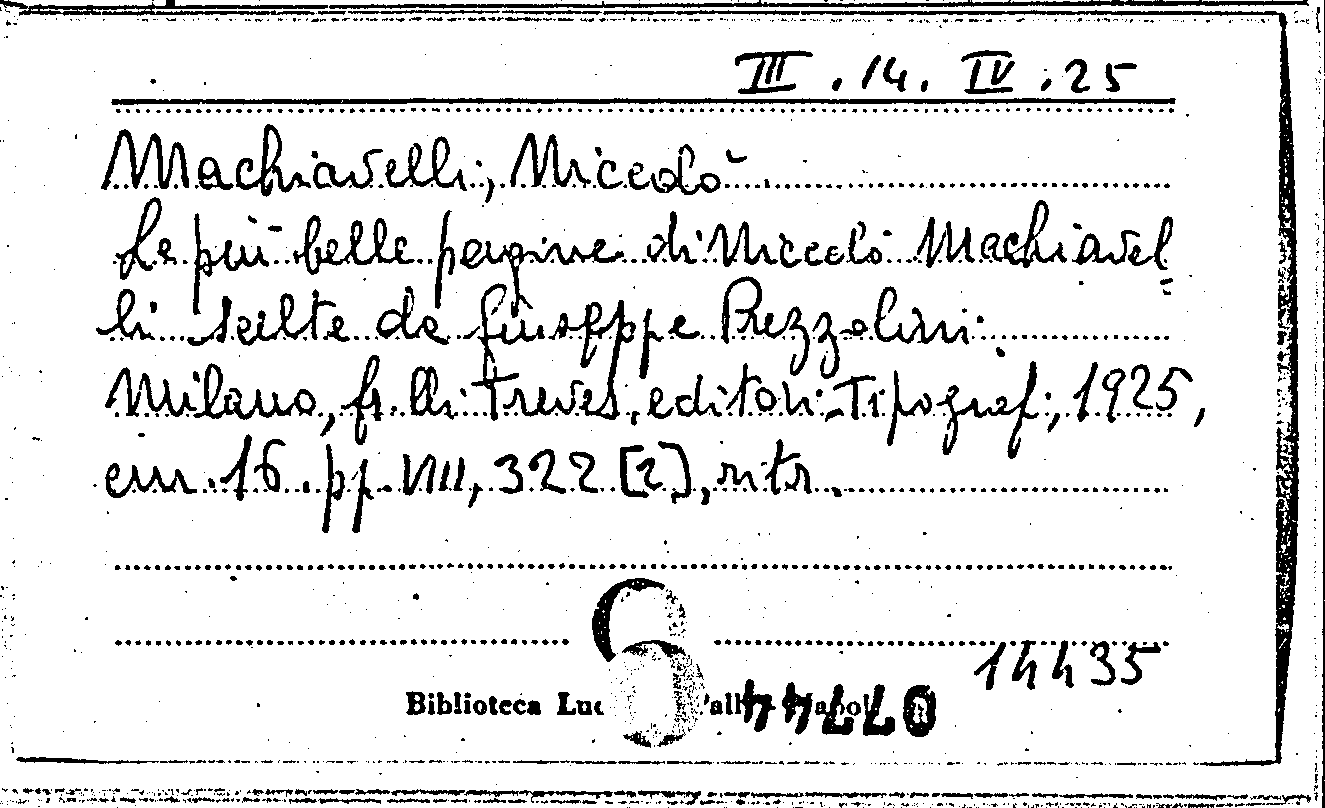 III.14.IV.25
Machiavelli, Niccolò
Le più belle pagine di Niccolò Machiavel=
li scelte da Giuseppe Prezzolini.
Milano, f.lli Treves, editori-Tipograf., 1925,
cm. 16. pp. VIII, 322 [2], ritr.
14435
Biblioteca
07744